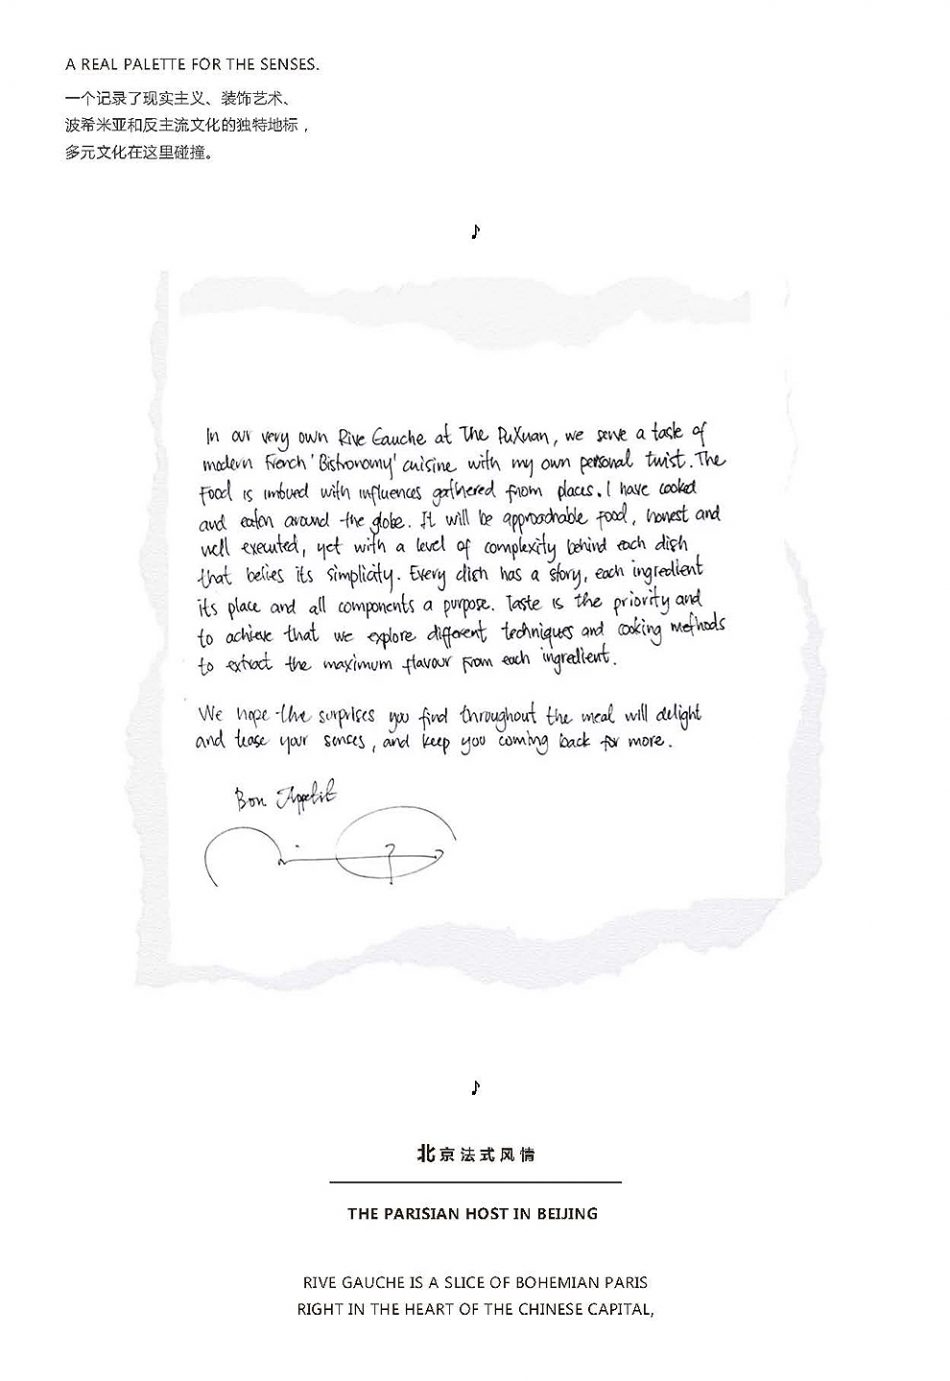 A REAL PALETTE FOR THE SENSES.
一个记录了现实主义、装饰艺术、
波希米亚和反主流文化的独特地标，
多元文化在这里碰撞。
In our very own Rive Gauche at The PuXuan, we serve a taste of
modern French 'Bistronomy' cuisine with my own personal twist. The
food is imbued with influences gathered from places. I have cooked
and eaten around the globe. It will be approachable food, honest and
well executed, yet with a level of complexity behind each dish
that belies its simplicity. Every dish has a story, each ingredient
its place and all components a purpose. Taste is the priority and
to achieve that we explore different techniques and cooking methods
to extract the maximum flavour from each ingredient.
We hope the surprises you find throughout the meal will delight
and tease your senses, and keep you coming back for more.
Bon Appetit
北京法式风情
THE PARISIAN HOST IN BEIJING
RIVE GAUCHE IS A SLICE OF BOHEMIAN PARIS
RIGHT IN THE HEART OF THE CHINESE CAPITAL,